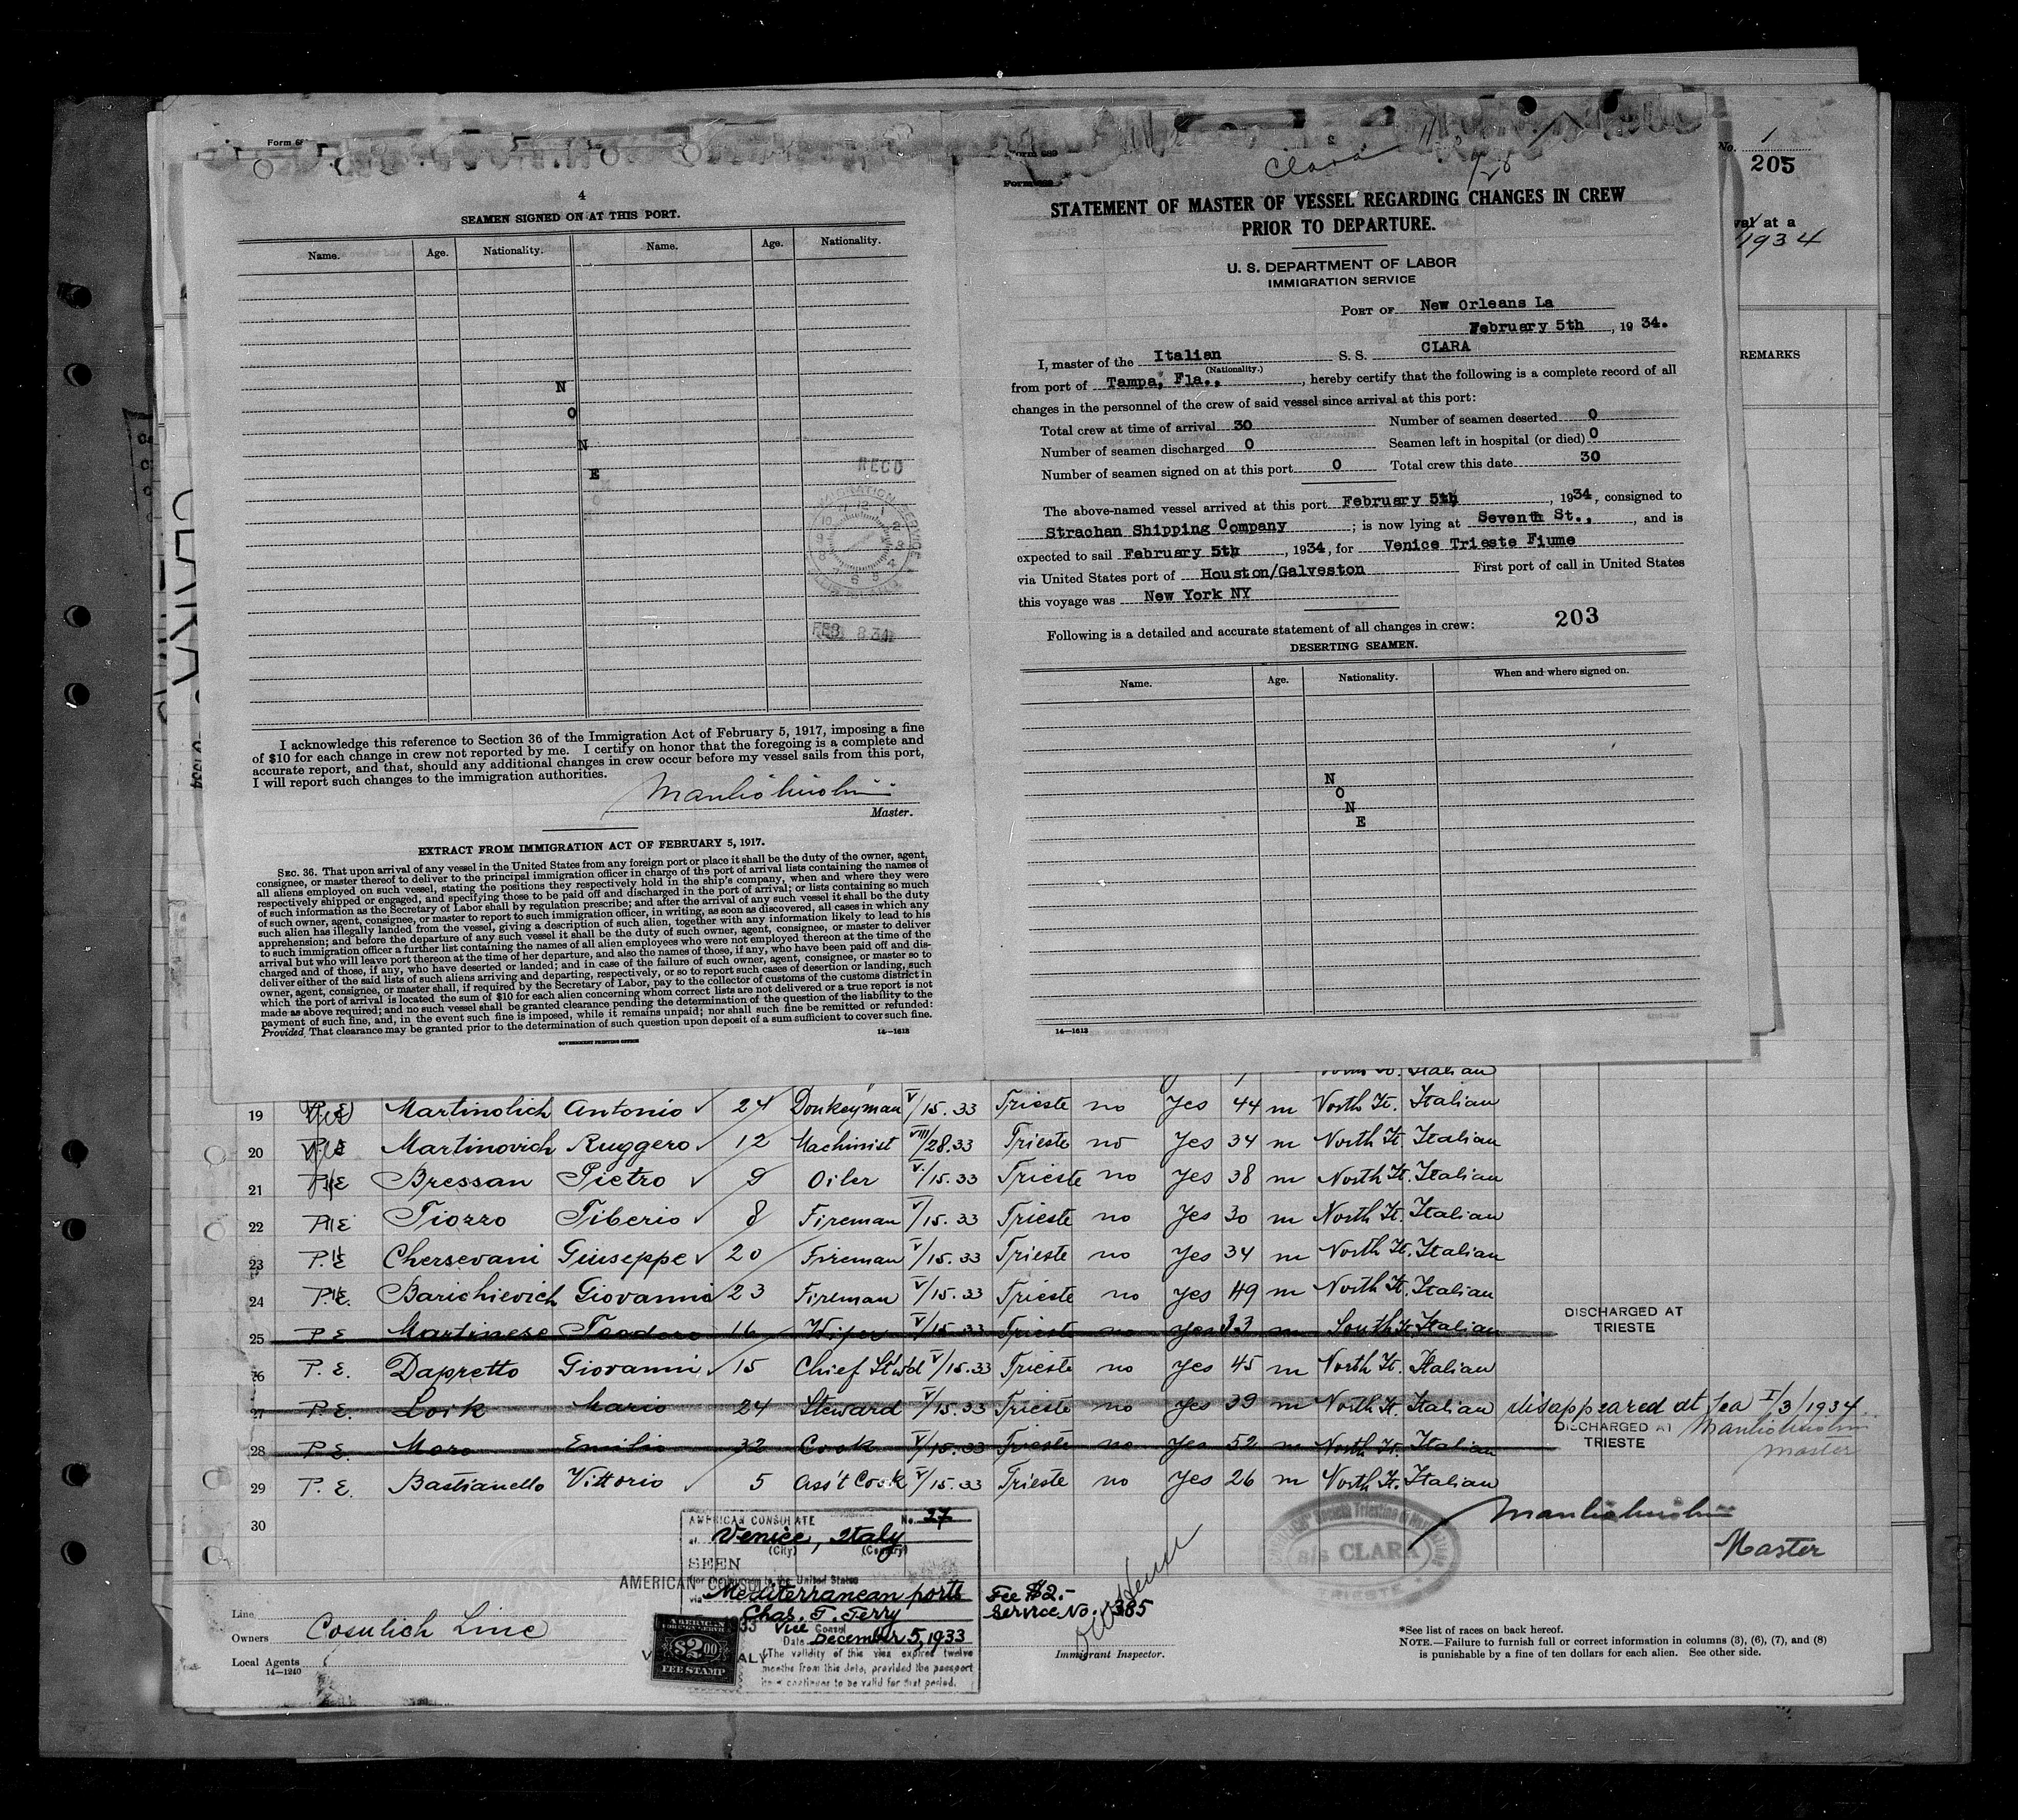 Form 68
4
SEAMEN SIGNED ON AT THIS PORT.
Name. Age. Nationality. Name. Age. Nationality.
N
O
N
E
RECD
FEB 8 34
I acknowledge this reference to Section 36 of the Immigration Act of February 5, 1917, imposing a fine
of $10 for each change in crew not reported by me. I certify on honor that the foregoing is a complete and
accurate report, and that, should any additional changes in crew occur before my vessel sails from this port,
I will report such changes to the immigration authorities.
Master.
EXTRACT FROM IMMIGRATION ACT OF FEBRUARY 5, 1917.
SEC. 36. That upon arrival of any vessel in the United States from any foreign port or place it shall be the duty of the owner, agent,
consignee, or master thereof to deliver to the principal immigration officer in charge of the port of arrival lists containing the names of
all aliens employed on such vessel, stating the positions they respectively hold in the ship's company, when and where they were
respectively shipped or engaged, and specifying those to be paid off and discharged in the port of arrival; or lists containing so much
of such information as the Secretary of Labor shall by regulation prescribe; and after the arrival of any such vessel it shall be the duty
of such owner, agent, consignee, or master to report to such immigration officer, in writing, as soon as discovered, all cases in which any
such alien has illegally landed from the vessel, giving a description of such alien, together with any information likely to lead to his
apprehension; and before the departure of any such vessel it shall be the duty of such owner, agent, consignee, or master to deliver
to such immigration officer a further list containing the names of all alien employees who were not employed thereon at the time of the
arrival but who will leave port thereon at the time of her departure, and also the names of those, if any, who have been paid off and dis-
charged and of those, if any, who have deserted or landed; and in case of the failure of such owner, agent, consignee, or master so to
deliver either of the said lists of such aliens arriving and departing, respectively, or so to report such cases of desertion or landing, such
owner, agent, consignee, or master shall, if required by the Secretary of Labor, pay to the collector of customs of the customs district in
which the port of arrival is located the sum of $10 for each alien concerning whom correct lists are not delivered or a true report is not
made as above required; and no vessel shall be granted clearance pending the determination of the question of the liability to the
payment of such fine, and, in the event such fine is imposed, while it remains unpaid; nor shall such fine be remitted or refunded:
Provided, That clearance may be granted prior to the determination of such question upon deposit of a sum sufficient to cover such fine.
14—1612
GOVERNMENT PRINTING OFFICE
Clara
Form
STATEMENT OF MASTER OF VESSEL REGARDING CHANGES IN CREW
PRIOR TO DEPARTURE.
U. S. DEPARTMENT OF LABOR
IMMIGRATION SERVICE
PORT OF New Orleans La
February 5th, 1934.
I, master of the Italian S. S. CLARA
(Nationality.)
from port of Tampa, Fla., hereby certify that the following is a complete record of all
changes in the personnel of the crew of said vessel since arrival at this port:
Total crew at time of arrival 30 Number of seamen deserted 0
Number of seamen discharged 0 Seamen left in hospital (or died) 0
Number of seamen signed on at this port 0 Total crew this date 30
The above-named vessel arrived at this port February 5th, 1934, consigned to
Strachan Shipping Company; is now lying at Seventh St., and is
expected to sail February 5th, 1934, for Venice Trieste Fiume
via United States port of Houston/Galveston First port of call in United States
this voyage was New York NY
203
Following is a detailed and accurate statement of all changes in crew:
DESERTING SEAMEN.
Name. Age. Nationality. When and where signed on.
N
O
N
E
14—1612
No. 1
205
val at a
1934
REMARKS
CLARA
Italian
19 Martinolich Antonio 24 Donkeyman V/15.33 Trieste no Yes 44 m North It. Italian
20 Martinovich Ruggero 12 Machinist VIII/28.33 Trieste no Yes 34 m North It. Italian
21 P.E Bressan Pietro 9 Oiler V/15.33 Trieste no Yes 38 m North It. Italian
22 P.E Tiozzo Tiberio 8 Fireman V/15.33 Trieste no Yes 30 m North It. Italian
23 P.E Chersevani Giuseppe 20 Fireman V/15.33 Trieste no Yes 34 m North It. Italian
24 P.E. Barichievich Giovanni 23 Fireman V/15.33 Trieste no Yes 49 m North It. Italian
25 P.E. Martinese Teodoro 16 Wiper V/15.33 Trieste no yes 33 m South It. Italian DISCHARGED AT TRIESTE
26 P.E. Dapretto Giovanni 15 Chief St'wd V/15.33 Trieste no Yes 45 m North It. Italian
27 P.E. Loik Mario 24 Steward V/15.33 Trieste no yes 39 m North It. Italian disappeared at sea I/3/1934
28 P.E. Moro Emilio 32 Cook V/15.33 Trieste no Yes 52 m North It. Italian DISCHARGED AT TRIESTE Master
29 P.E. Bastianello Vittorio 5 Ass't Cook V/15.33 Trieste no Yes 26 m North It. Italian
30
Master
AMERICAN CONSULATE No. 27
at Venice, Italy
(City) (Country)
SEEN
For the journey to the United States
AMERICAN CONSUL
via Mediterranean ports
Chas. T. Terry
Vice Consul
Date December 5, 1933
The validity of this visa expires twelve
months from this date, provided the passport
continues to be valid for that period.
AMERICAN
$2.00
FEE STAMP
Fee $2.-
Service No. 1385
Immigrant Inspector.
s/s CLARA
TRIESTE
Line
Owners Cosulich Line
Local Agents
14—1240
*See list of races on back hereof.
NOTE.—Failure to furnish full or correct information in columns (3), (6), (7), and (8)
is punishable by a fine of ten dollars for each alien. See other side.